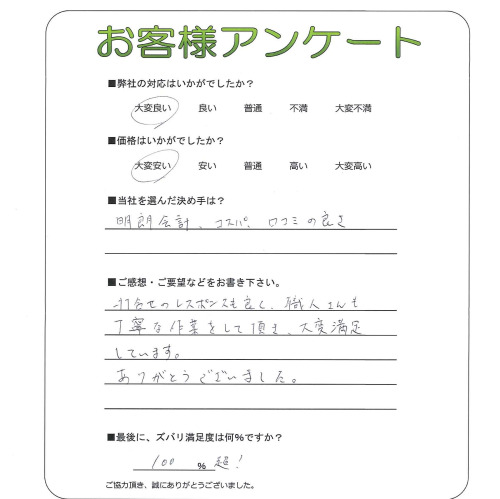 お客様アンケート
■弊社の対応はいかがでしたか？
大変良い 良い 普通 不満 大変不満
■価格はいかがでしたか？
大変安い 安い 普通 高い 大変高い
■当社を選んだ決め手は？
明朗会計、コスパ、口コミの良さ
■ご感想・ご要望などをお書き下さい。
打合せのレスポンスも良く、職人さんも
丁寧な作業をして頂き、大変満足
しています。
ありがとうございました。
■最後に、ズバリ満足度は何%ですか？
100 % 超！
ご協力頂き、誠にありがとうございました。